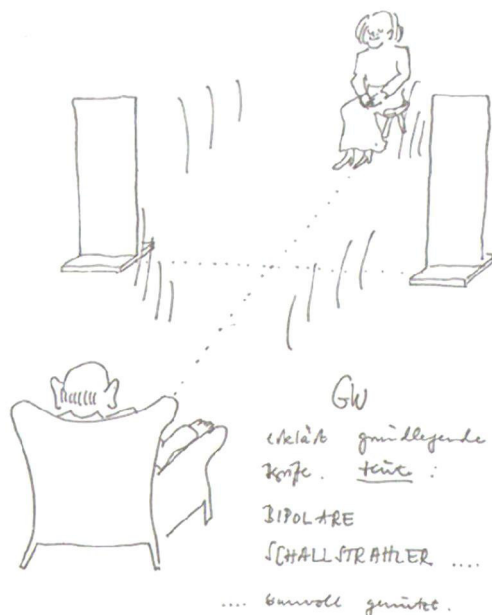 GW
erklärt grundlegende
Begriffe. Heute:
BIPOLARE
SCHALLSTRAHLER ....
.... sinnvoll genützt.